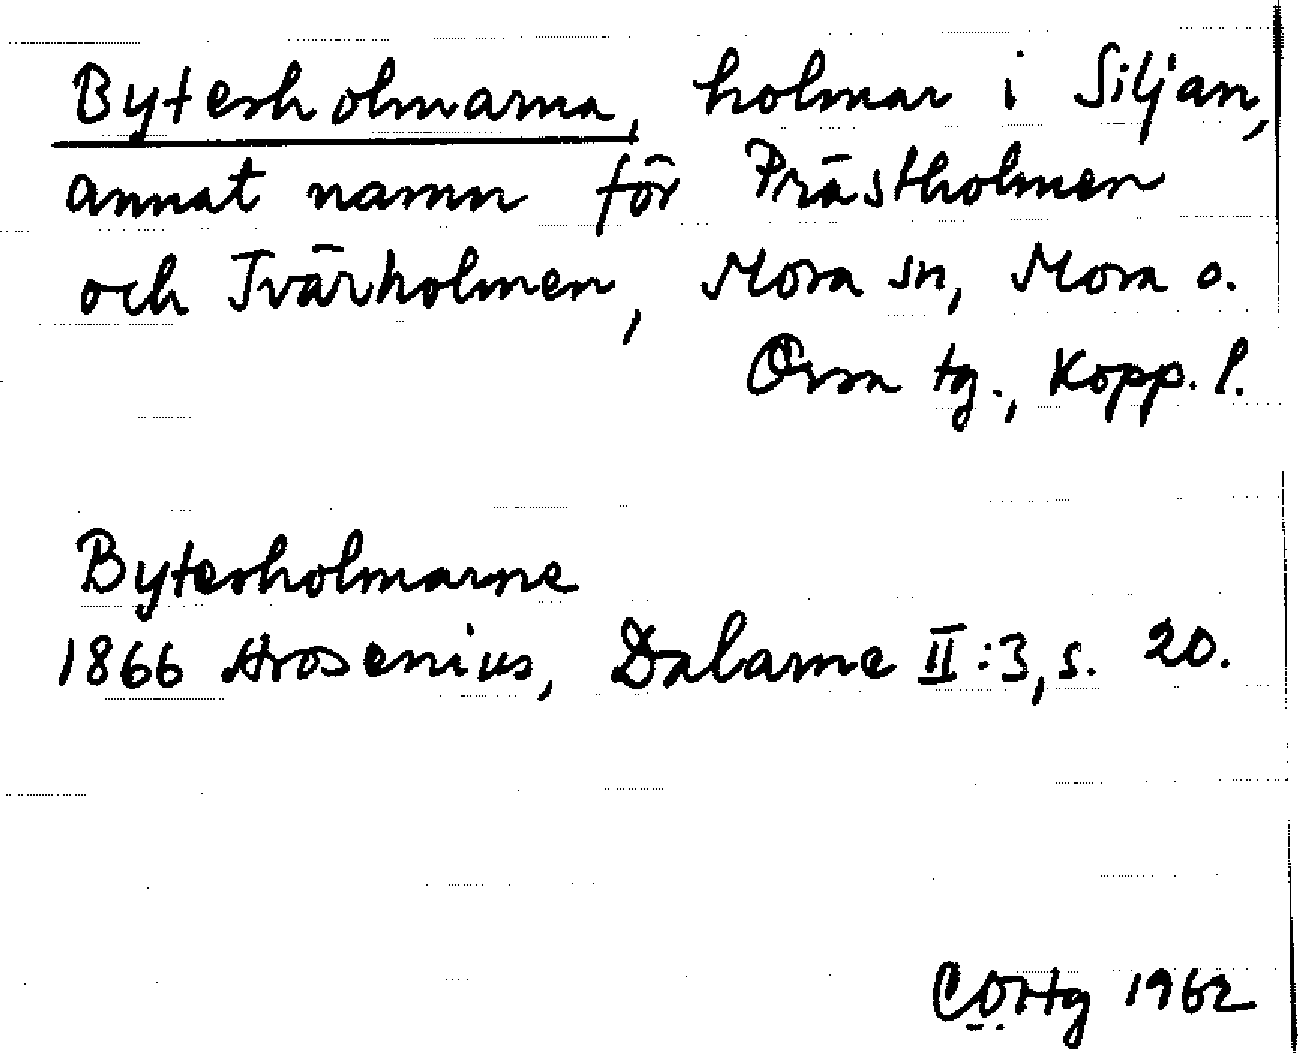 Bytesholmarna, holmar i Siljan,
annat namn för Prästholmen
och Tvärholmen, Mora sn, Mora o.
Orsa tg., Kopp. l.
Bytesholmarne
1866 Arosenius, Dalarne II:3, s. 20.
1962